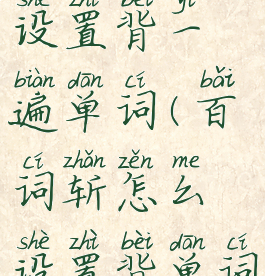 shè zhì bèi yī
设置背一
biàn dān cí bǎi
遍单词(百
cí zhǎn zěn me
词斩怎么
shè zhì bèi dān cí
设置背单词